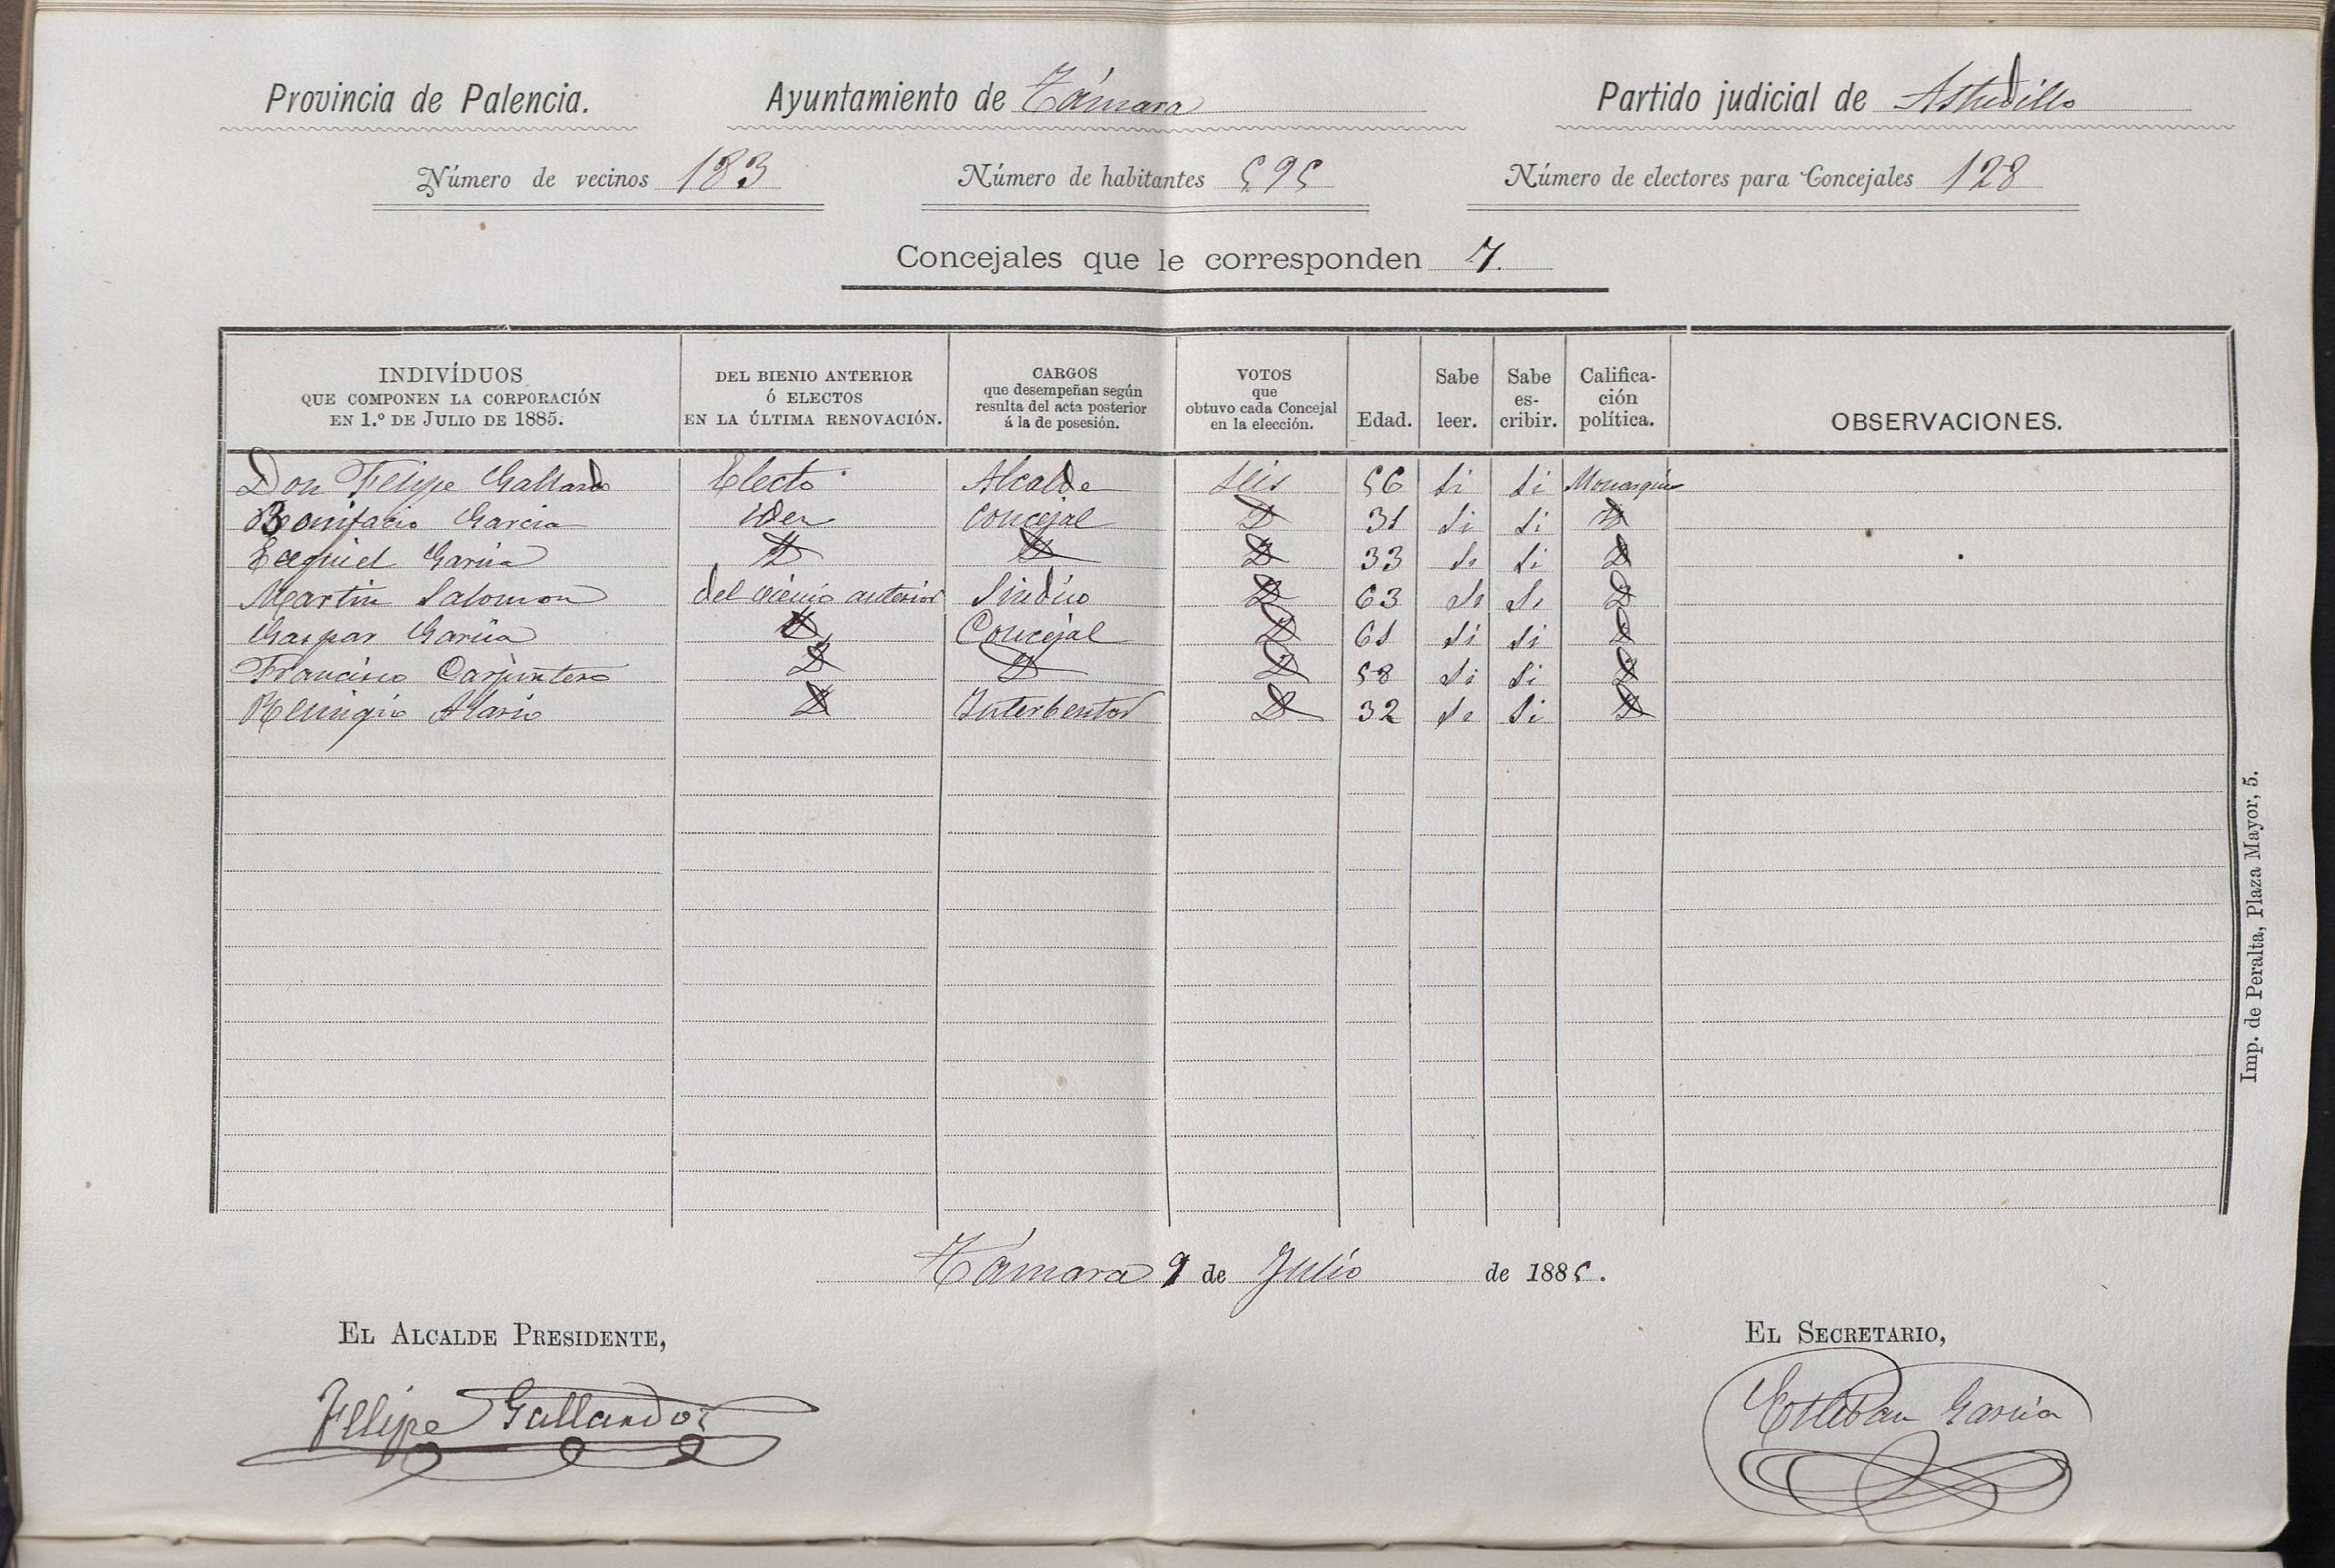 Provincia de Palencia. Ayuntamiento de Támara Partido judicial de Astudillo
Número de vecinos 183 Número de habitantes 595 Número de electores para Concejales 128
Concejales que le corresponden 7.
INDIVÍDUOS QUE COMPONEN LA CORPORACIÓN EN 1.º DE JULIO DE 1885. DEL BIENIO ANTERIOR Ó ELECTOS EN LA ÚLTIMA RENOVACIÓN. CARGOS que desempeñan según resulta del acta posterior á la de posesión. VOTOS que obtuvo cada Concejal en la elección. Edad. Sabe leer. Sabe es-cribir. Califica-ción política. OBSERVACIONES.
Don Felipe Gallardo Electo Alcalde Seis 56 Si Si Monarquico
Bonifacio Garcia Iden Concejal D 31 Si Si D
Ezequiel Garcia D D D 33 Si Si D
Martin Salomon del vienio anterior Sindico D 63 Si Si D
Gaspar Garcia D Concejal D 61 Si Si D
Francisco Carpintero D D D 58 Si Si D
Remigio Alario D Interbentor D 32 Si Si D
Támara 9 de Julio de 1885.
EL ALCALDE PRESIDENTE, EL SECRETARIO,
Felipe Gallardo Esteban Garcia
Imp. de Peralta, Plaza Mayor, 5.